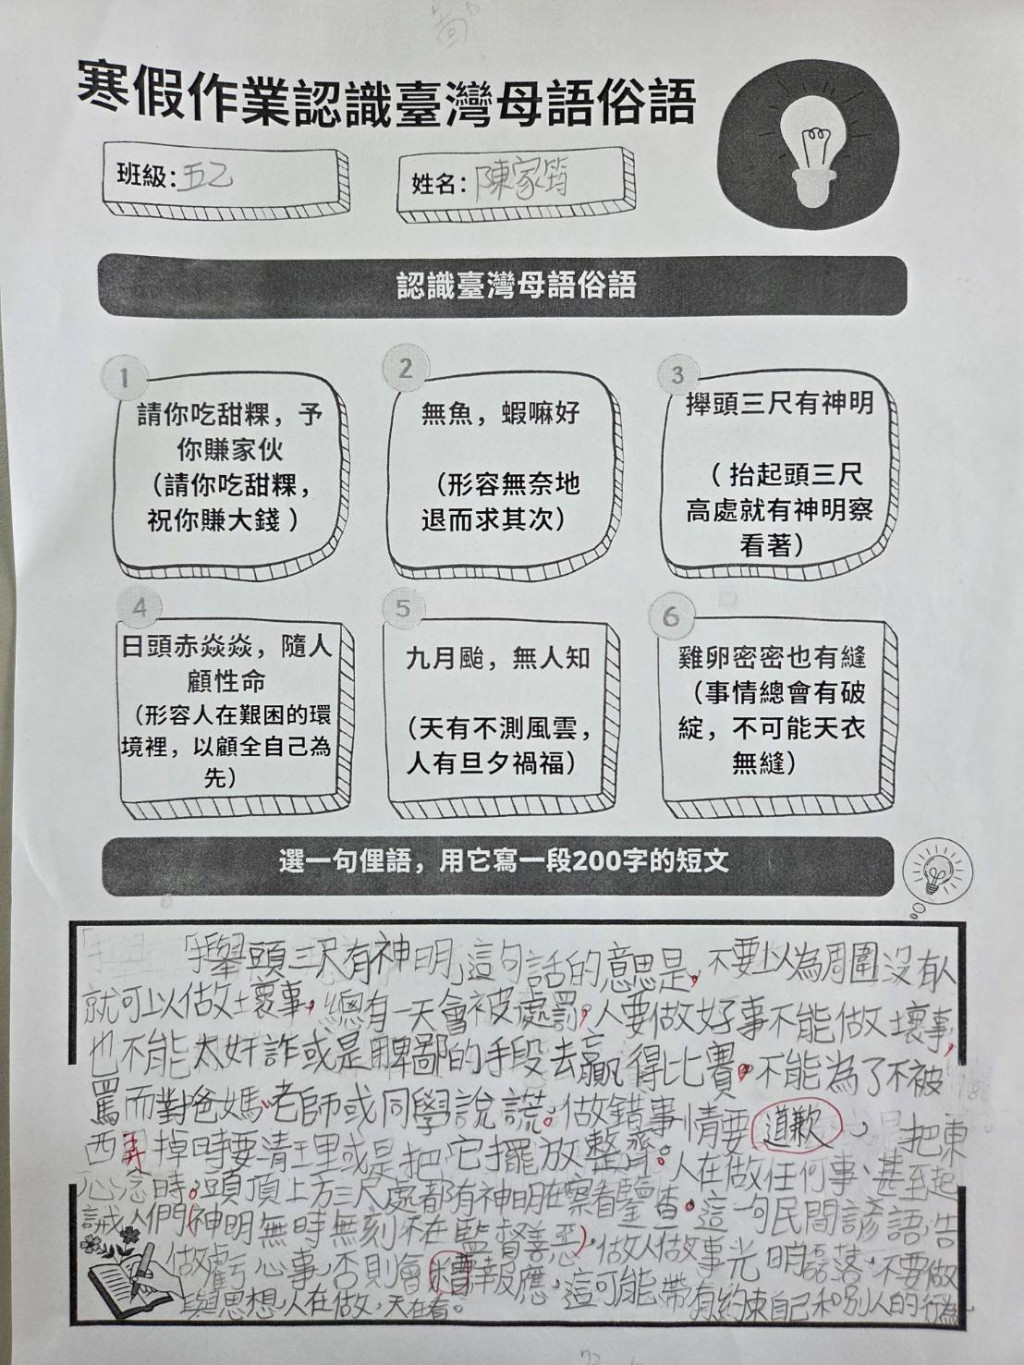 寒假作業認識臺灣母語俗語
班級：五乙
姓名：陳家筠
認識臺灣母語俗語
1
請你吃甜粿，予
你賺家伙
（請你吃甜粿，
祝你賺大錢 ）
2
無魚，蝦嘛好
（形容無奈地
退而求其次）
3
攑頭三尺有神明
（ 抬起頭三尺
高處就有神明察
看著）
4
日頭赤焱焱，隨人
顧性命
（形容人在艱困的環
境裡，以顧全自己為
先）
5
九月颱，無人知
（天有不測風雲，
人有旦夕禍福）
6
雞卵密密也有縫
（事情總會有破
綻，不可能天衣
無縫）
選一句俚語，用它寫一段200字的短文
「攑頭三尺有神明」這句話的意思是，不要以為周圍沒有人
就可以做壞事，總有一天會被處罰。人要做好事不能做壞事，
也不能太奸詐或是卑鄙的手段去贏得比賽。不能為了不被
罵而對爸媽、老師或同學說謊。做錯事情要道歉，把東
西弄掉時要清理或是把它擺放整齊。人在做任何事、甚至起
心念時。頭頂上方三尺處都有神明在察看鑒查。這一句民間諺語告
誡人們神明無時無刻不在監督善惡，做人做事光明磊落，不要做
做虧心事，否則會遭報應，這可能帶有約束自己和別人的行為
與思想，人在做，天在看。